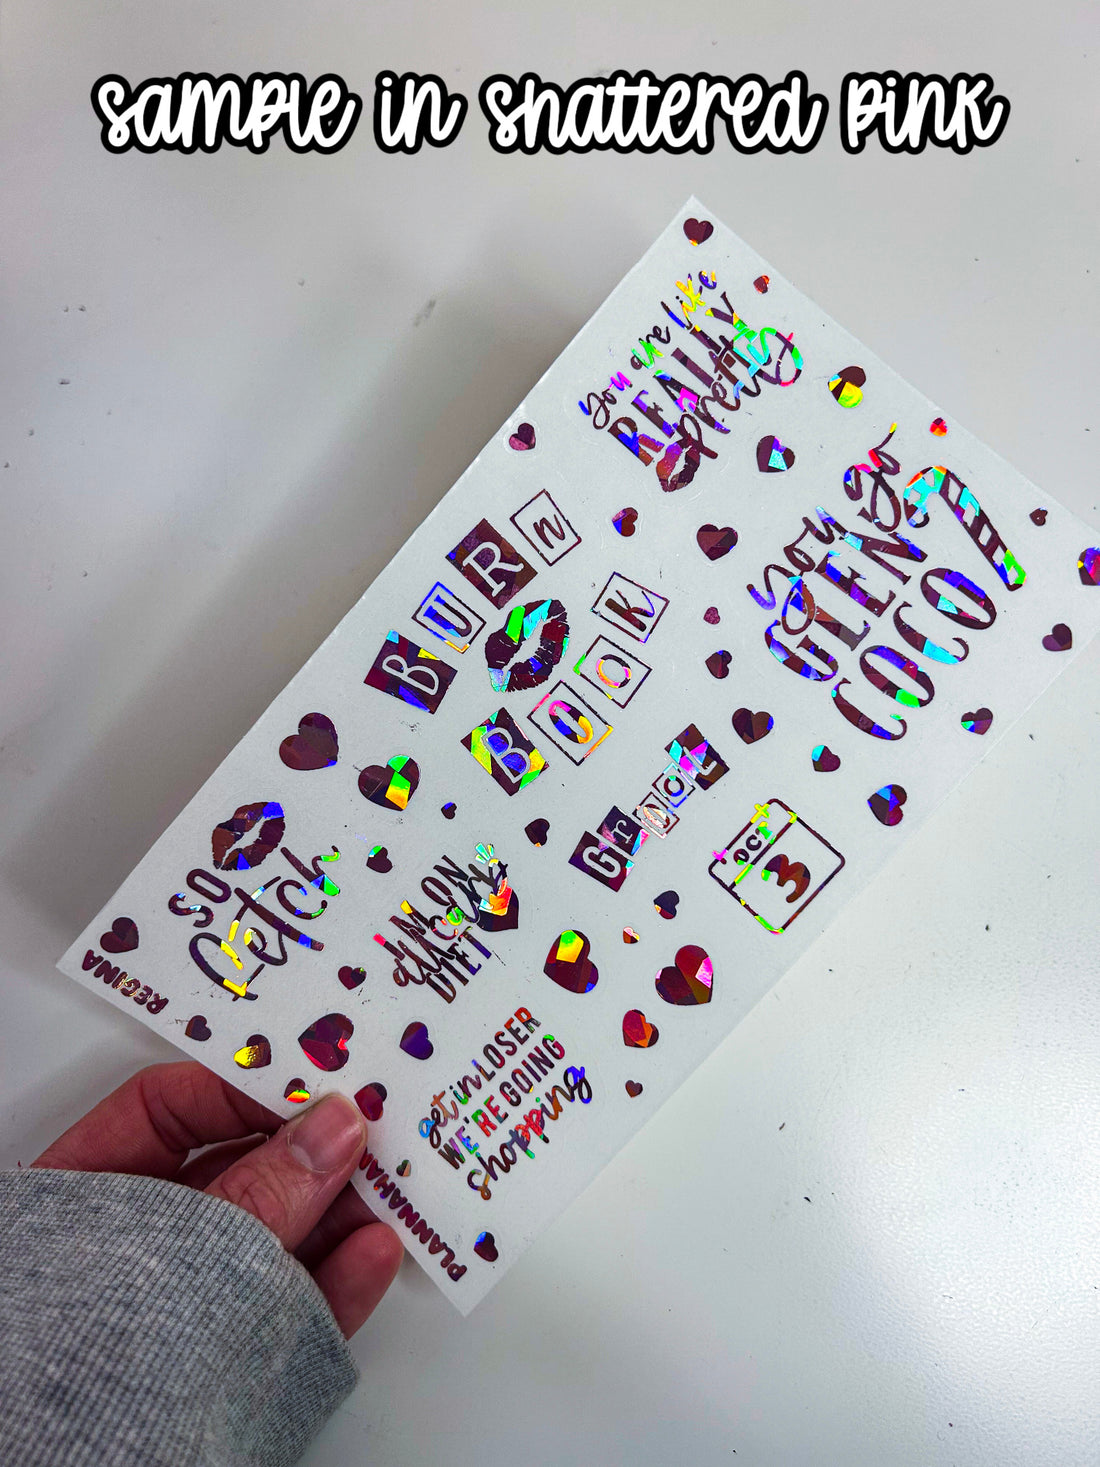 sample in shattered pink
you are like
REALLY
pretty
you go
GLEN
COCO
BURn
BOOK
GrOOL
OCT
3
SO
fetch
I'M ON
DIET
get in LOSER
WE'RE GOING
shopping
REGINA